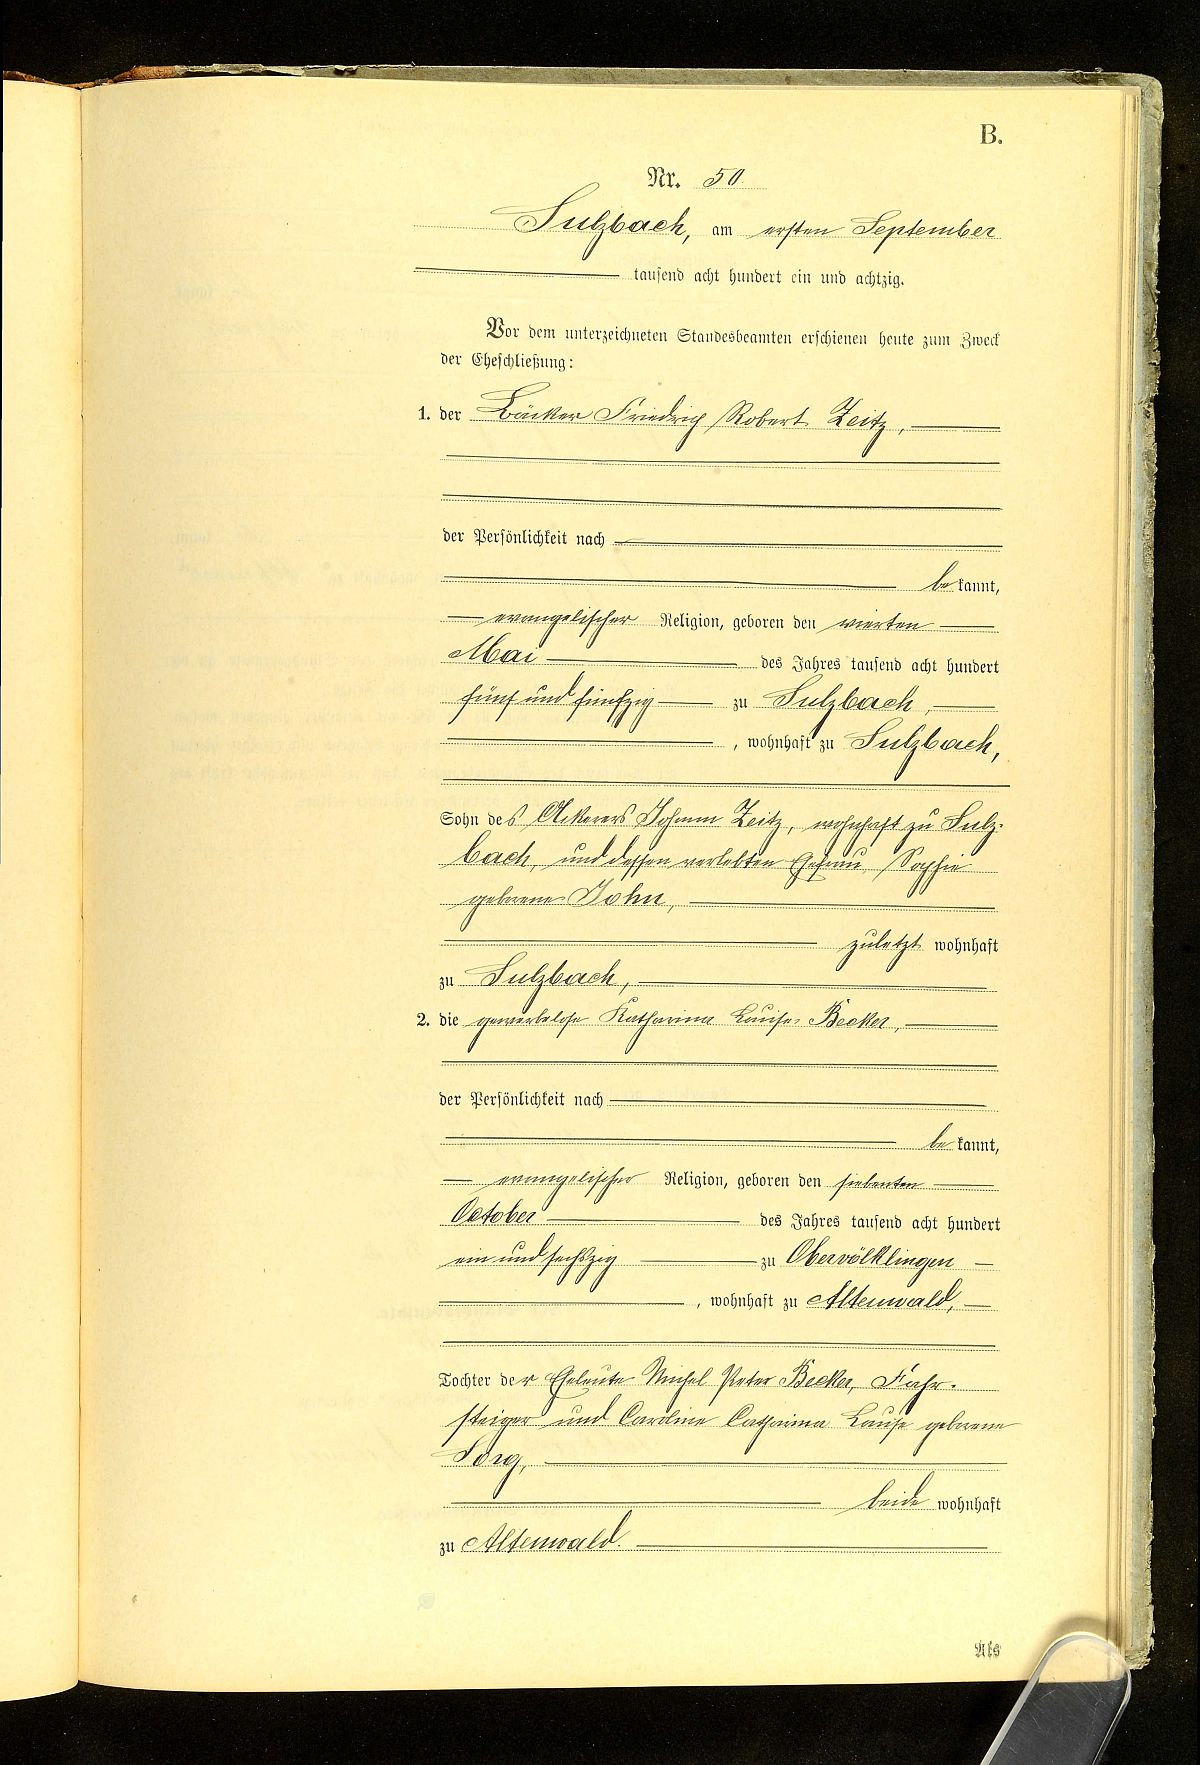 B.
Nr. 50
Sulzbach, am ersten September
tausend acht hundert ein und achtzig.
Vor dem unterzeichneten Standesbeamten erschienen heute zum Zweck
der Eheschließung:
1. der Bäcker Friedrich Robert Zeitz,
der Persönlichkeit nach
be kannt,
evangelischer Religion, geboren den vierten
Mai des Jahres tausend acht hundert
fünf und fünfzig zu Sulzbach,
, wohnhaft zu Sulzbach,
Sohn des Ackerers Johann Zeitz, wohnhaft zu Sulz-
bach, und dessen verlebten Ehefrau, Sophie
geborene John,
zuletzt wohnhaft
zu Sulzbach,
2. die gewerbelose Katharina Louise Becker,
der Persönlichkeit nach
be kannt,
evangelischer Religion, geboren den siebenten
October des Jahres tausend acht hundert
ein und sechszig zu Obervölklingen
, wohnhaft zu Altenwald,
Tochter der Eheleute Michel Peter Becker, Fahr-
steiger und Caroline Catharina Louise geborene
Sorg,
beide wohnhaft
zu Altenwald.
Als